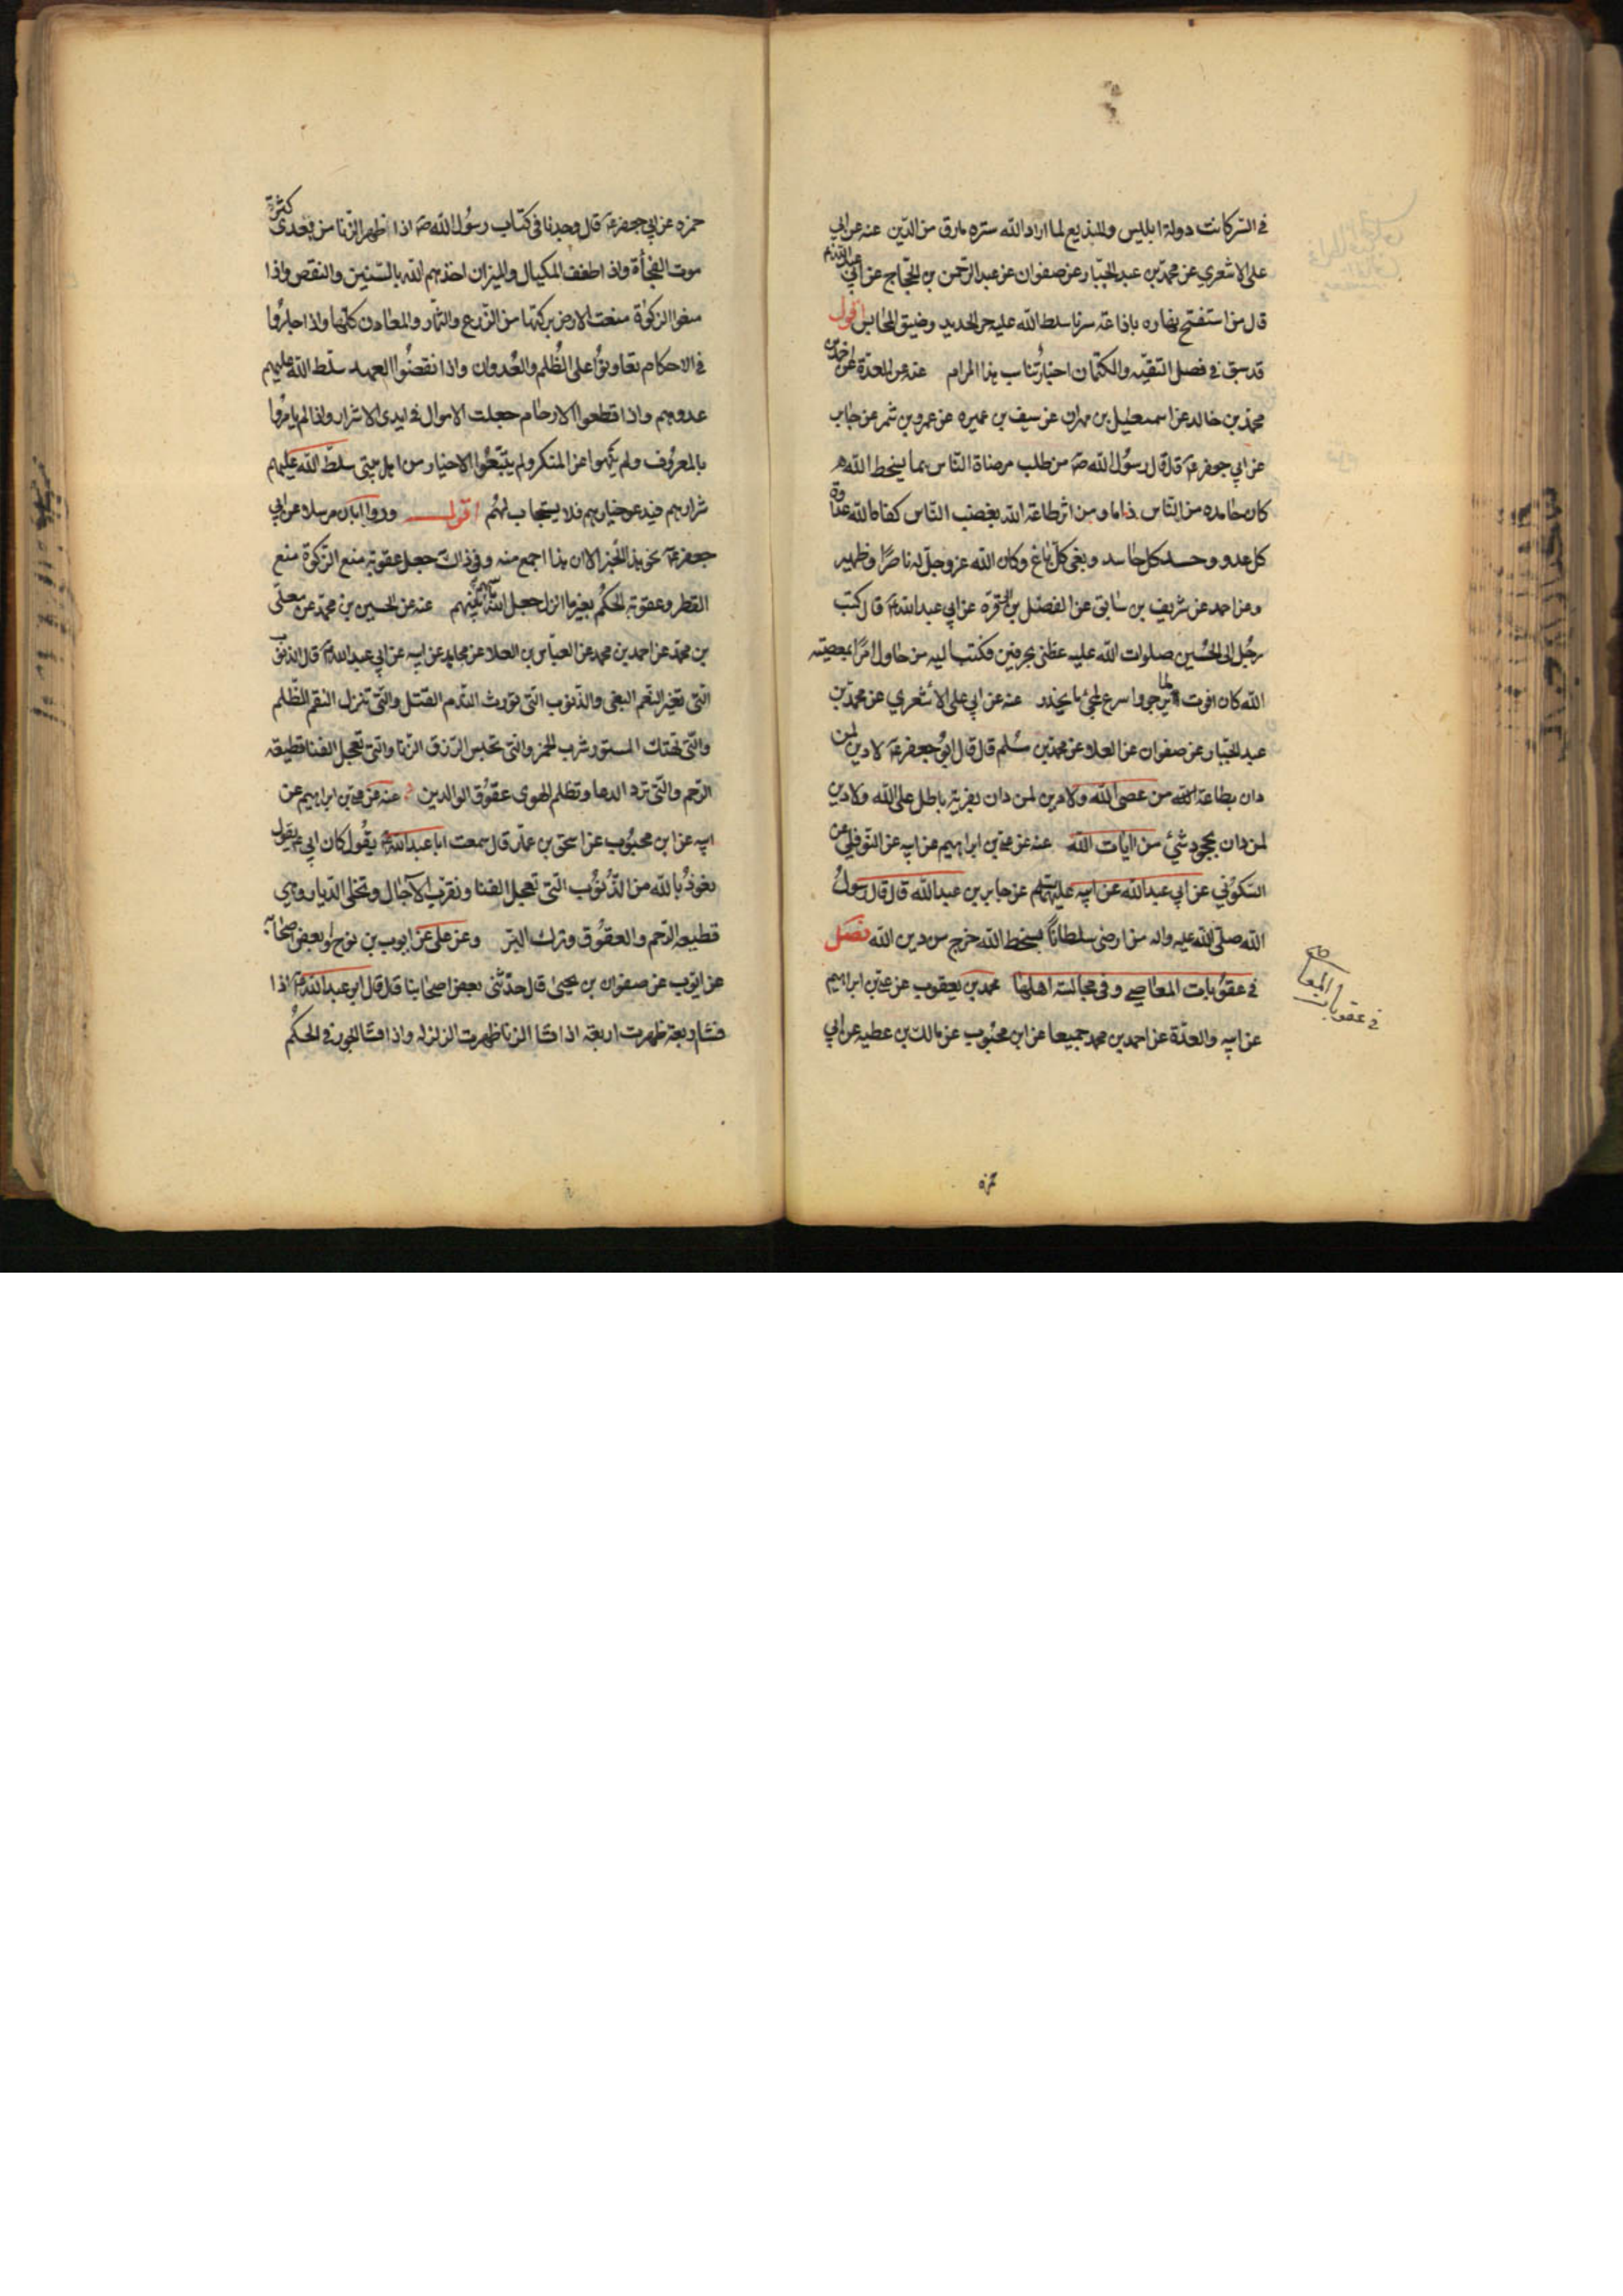 في السر كانت دولة ابليس والمذيع لما اراد الله ستره مارق من الدين عنه عن ابي
على الاشعري عن محمد بن عبد الجبار عن صفوان عن عبد الرحمن بن الحجاج عن ابي عبد الله ع
قال من استفتح نهاره باذاعة سرنا سلط الله عليه حر الحديد وضيق المحابس اقول
قد سبق في فصل التقيه والكتمان اخبار تناسب هذا المرام عنه عن العدة عن احمد بن
محمد بن خالد عن اسمعيل بن مهران عن سيف بن عميره عن عمرو بن شمر عن جابر
عن ابي جعفر ع قال قال رسول الله ص من طلب مرضاة الناس بما يسخط الله
كان حامده من الناس ذاما ومن اثر طاعة الله بغضب الناس كفاه الله عداوة
كل عدو وحسد كل حاسد وبغى كل باغ وكان الله عز وجل له ناصرا وظهير
وعن احمد عن شريف بن سابق عن الفضل بن ابي قره عن ابي عبد الله ع قال كتب
رجل الى الحسين صلوات الله عليه عظنى بحرفين فكتب اليه من حاول امرا بمعصيته
الله كان افوت لما يرجو واسرع لمجئ ما يحذر عنه عن ابي على الأشعري عن محمد بن
عبد الجبار عن صفوان عن العلا عن محمد بن مسلم قال قال ابو جعفر ع لا دين لمن
دان بطاعة الله من عصى الله ولا دين لمن دان بفرية باطل على الله ولا دين
لمن دان بجحود شئ من ايات الله عنه عن علي بن ابراهيم عن ابيه عن النوفلي عن
السكوني عن ابي عبد الله عن ابيه عليهما السلم عن جابر بن عبد الله قال قال رسول
الله صلى الله عليه واله من ارضى سلطانا بسخط الله خرج من دين الله فصل
في عقوبات المعاصي وفي مجالسة اهلها محمد بن يعقوب عن علي بن ابراهيم
عن ابيه والعدة عن احمد بن محمد جميعا عن ابن محبوب عن مالك بن عطيه عن ابي
في عقوبات المعاصي
حمزه
حمزه عن ابي جعفر ع قال وجدنا في كتاب رسول الله ص اذا ظهر الزنا من بعدى كثرة
موت الفجأة واذا طفف المكيال والميزان اخذهم الله بالسنين والنقص واذا
منعوا الزكوة منعت الارض بركتها من الزرع والثمار والمعادن كلها واذا جاروا
في الاحكام تعاونوا على الظلم والعدوان واذا نقضوا العهد سلط الله عليهم
عدوهم واذا قطعوا الارحام جعلت الاموال في ايدى الاشرار واذا لم يامروا
بالمعروف ولم ينهوا عن المنكر ولم يتبعوا الاخيار من اهل بيتى سلط الله عليهم
شرارهم فيدعو خيارهم فلا يستجاب لهم اقول ورواه ابان مرسلا عن ابي
جعفر ع نحو هذا الخبر الا ان هذا اجمع منه وفي ذاك جعل عقوبة منع الزكوة منع
القطر وعقوبة الحكم بغير ما انزل جعل الله باسهم بينهم عنه عن الحسين بن محمد عن معلى
بن محمد عن احمد بن محمد عن العباس بن العلا عن مجاهد عن ابيه عن ابي عبد الله ع قال الذنوب
التى تغير النعم البغى والذنوب التى تورث الندم القتل والتى تنزل النقم الظلم
والتى تهتك الستور شرب الخمر والتى تحبس الرزق الزنا والتى تعجل الفنا قطيعة
الرحم والتى ترد الدعا وتظلم الهوى عقوق الوالدين عنه عن علي بن ابراهيم عن
ابيه عن ابن محبوب عن اسحق بن عمار قال سمعت ابا عبد الله ع يقول كان ابي ع يقول
نعوذ بالله من الذنوب التى تعجل الفنا وتقرب الآجال وتخلى الديار وهي
قطيعه الرحم والعقوق وترك البر وعن علي عن ايوب بن نوح او بعض اصحابه
عن ايوب عن صفوان بن يحيى قال حدثنى بعض اصحابنا قال قال ابو عبد الله ع اذا
فشا اربعة ظهرت اربعة اذا فشا الزنا ظهرت الزلزله واذا فشا الجور في الحكم